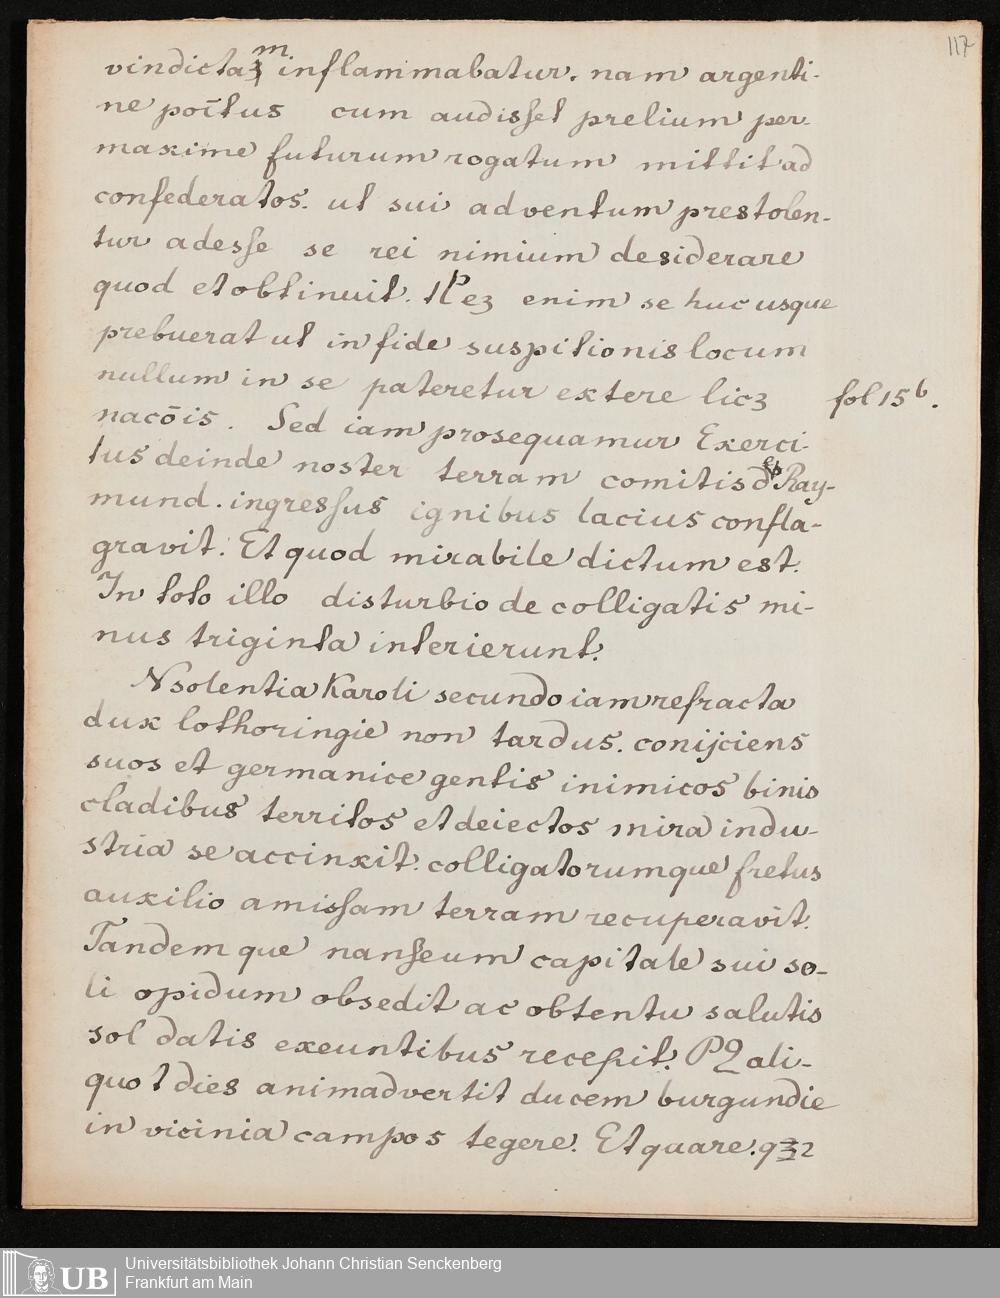 117
vindictaʒ m inflammabatur. nam argenti-
ne poītus cum audisset prelium per-
maxime futurum rogatum mittit ad
confederatos. ut sui adventum prestolen-
tur adesse se rei nimium desiderare
quod et obtinuit. enim se huc usque
prebuerat ut in fide suspitionis locum
nullum in se pateretur extere licʒ fol 15 b.
nacōis. Sed iam prosequamur Exerci-
tus deinde noster terram comitis Ray-
mund. ingressus ignibus lacius confla-
gravit. Et quod mirabile dictum est.
In toto illo disturbio de colligatis mi-
nus triginta interierunt.
Nsolentia Karoli secundo iam refracta
dux lothoringie non tardus. conijciens
suos et germanice gentis inimicos binis
cladibus territos et deiectos mira indu-
stria se accinxit. colligatorumque fretus
auxilio amissam terram recuperavit.
Tandemque nanseum capitale sui so-
li opidum obsedit ac obtentu salutis
soldatis exeuntibus recepit. ali-
quot dies animadvertit ducem burgundie
in vicinia campos tegere. Et quare.
UB
Universitätsbibliothek Johann Christian Senckenberg
Frankfurt am Main